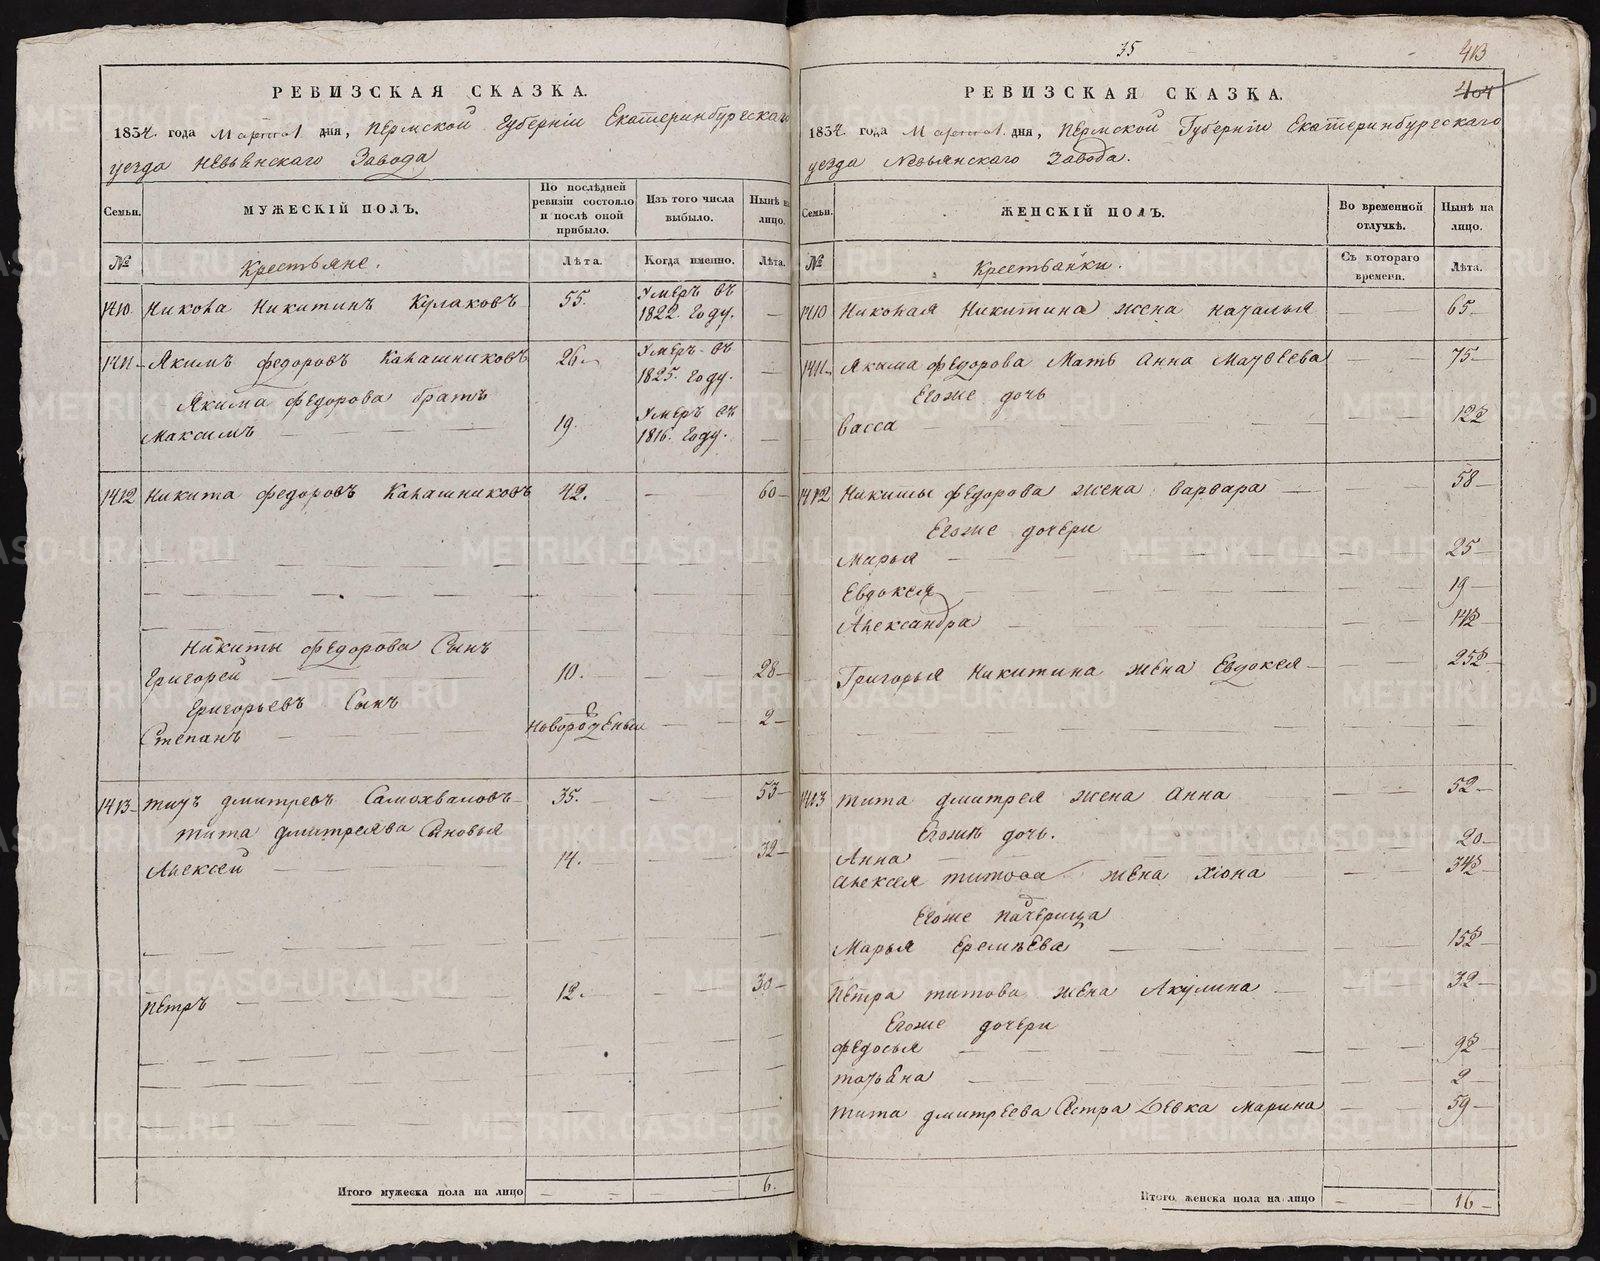 РЕВИЗСКАЯ СКАЗКА.
1834. года Марта 1 дня, Пермской Губерніи Екатеринбургскаго
уезда Невьянскаго Завода
Семьи.
МУЖЕСКІЙ ПОЛЪ.
По послѣдней ревизіи состояло и послѣ оной прибыло.
Изъ того числа выбыло.
Нынѣ на лицо.
№
Крестьяне.
Лѣта.
Когда именно.
Лѣта.
1410 Никона Никитинъ Кулаковъ 55. Умеръ въ 1822. Году. —
1411 Якимъ Федоровъ Калашниковъ 26. Умеръ въ 1825. Году. —
Якима Федорова братъ
Максимъ 19. Умеръ въ 1816. Году. —
1412 Никита Федоровъ Калашниковъ 42. — 60
Никиты Федорова Сынъ
Григорей 10. — 28
Григорьевъ Сынъ
Степанъ новорожденый — 2
1413 Титъ Дмитревъ Самохваловъ 35. — 53
Тита Дмитреева Сыновья
Алексей 14. — 32
Петръ 12. — 30
Итого мужеска пола на лицо 6.
35
413
404
РЕВИЗСКАЯ СКАЗКА.
1834. года Марта 1. дня, Пермской Губерніи Екатеринбургскаго
уезда Невьянскаго Завода.
Семьи.
ЖЕНСКІЙ ПОЛЪ.
Во временной отлучкѣ.
Нынѣ на лицо.
№
Крестьянки.
Съ котораго времени.
Лѣта.
1410 Николая Никитина жена Наталья — 65
1411 Якима Федорова Мать Анна Матвеева — 75
Егоже дочь
Васса — 12½
1412 Никиты Федорова жена Варвара — 58
Егоже дочери
Марья — 25
Евдокея — 19
Александра — 14½
Григорья Никитина жена Евдокея — 25½
1413 Тита Дмитрея жена Анна — 52
Егожъ дочь.
Анна — 20
Алексея Титова жена Хіона — 34½
Егоже падчерица
Марья Еремѣева — 15½
Петра Титова жена Акулина — 32
Егоже дочери
Федосья — 9½
Татьяна — 2
Тита Дмитреева Сестра Девка Марина — 59
Итого женска пола на лицо — 16
METRIKI.GASO-URAL.RU